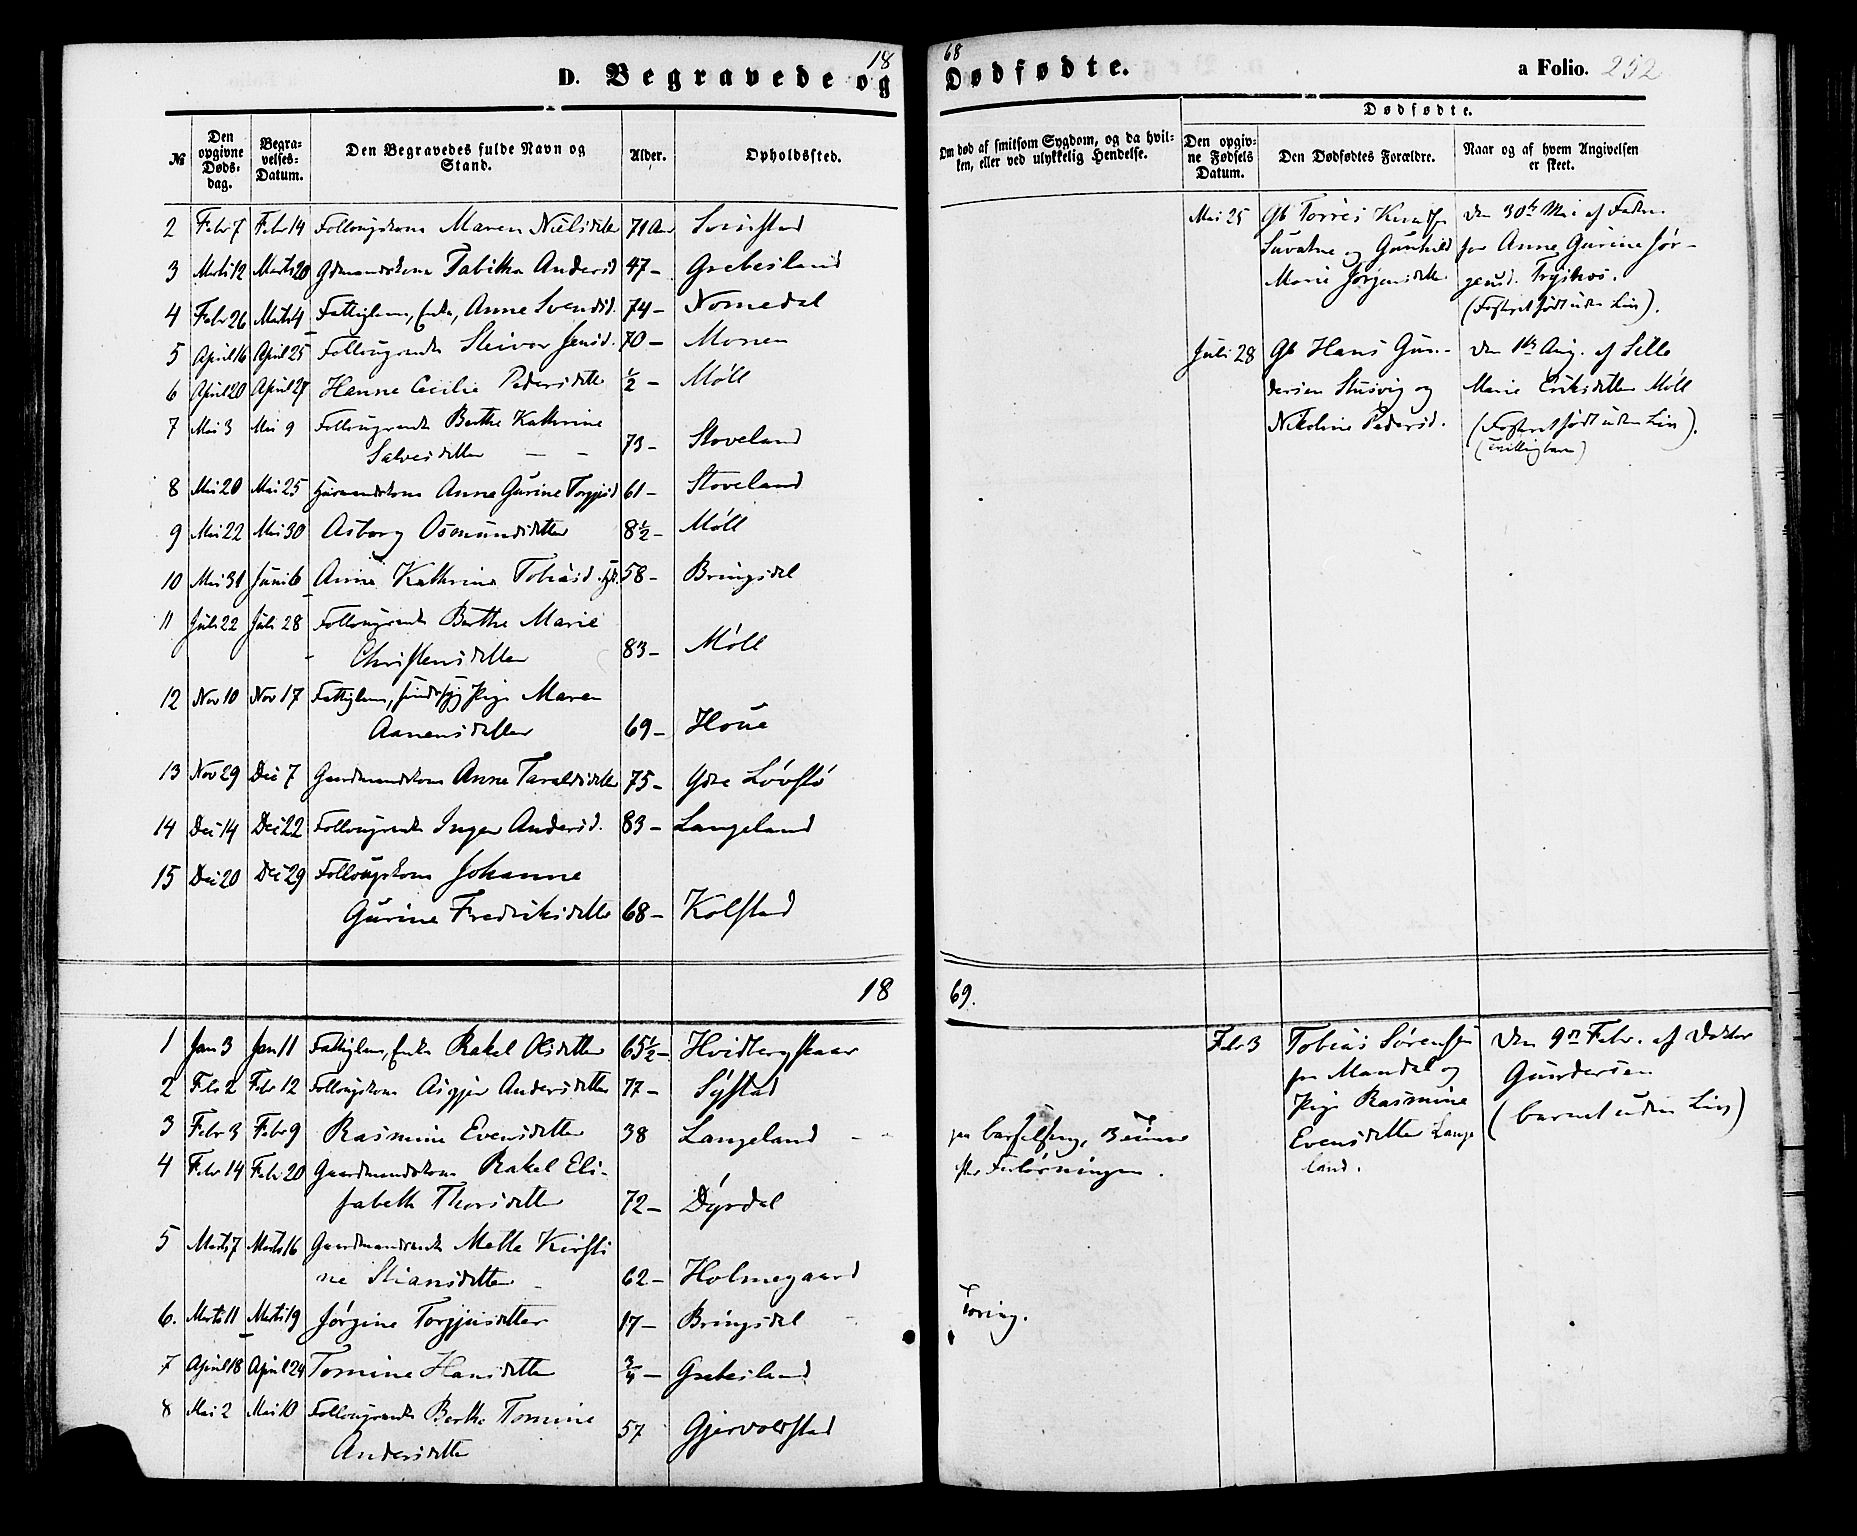 18
D. Begravede og
№
Den opgivne Døds-dag.
Begra-velses-Datum.
Den Begravedes fulde Navn og Stand.
Alder.
Opholdssted.
2 Febr 7 Febr 14 Maren Nielsdatter 71 Aar Svinstad
3 Marts 12 Marts 20 Gdmandskone Tabitha Andersd 47 - Grebesland
4 Febr 26 Marts 4 Fattiglem, Enke, Anne Svendsd. 74 - Nomedal
5 April 16 April 25 Jensd. 70 - Monen
6 April 20 April 27 Hanne Cecilie Pedersdatter ½ - Møll
7 Mai 3 Mai 9 Berthe Kathrine
Salvesdatter - - 73 - Stoveland
8 Mai 20 Mai 25 Anne Gurine Torgjusd 61 - Stoveland
9 Mai 22 Mai 30 Asborg Osmundsdatter 8½ - Møll
10 Mai 31 Juni 6 Anne Kathrine Tobiasd. 58 - Bringsdal
11 Juli 22 Juli 28 Berthe Marie
Christensdatter 83 - Møll
12 Nov 10 Nov 17 Fattiglem, Pige Maren
Aanensdatter 69 - Houe
13 Nov 29 Dec 7 Gaardmandskone Anne Taraldsdatter 75 - Ydre Løvstø
14 Dec 14 Dec 22 Inger Andersd. 83 - Langeland
15 Dec 20 Dec 29 Johanne
Gurine Fredriksdatter 68 - Kolstad
18
1 Jan 3 Jan 11 Fattiglem, Enke Rakel Olsdatter 65½ - Hvidbergskaar
2 Febr 2 Febr 12 Asgjer Andersdatter 77 - Systad
3 Febr 3 Febr 9 Rasmine Evensdatter 38 Langeland
4 Febr 14 Febr 20 Gaardmandskone Rakel Eli-
sabeth Thorsdatter 72 - Dyrdal
5 Marts 7 Marts 16 Gaardmandsenke Mette Kirsti
ne Stiansdatter 62 - Holmegaard
6. Marts 11 Marts 19 Jørgine Torgjusdatter 17 - Bringsdal
7 April 18 April 24 Tomine Hansdatter ¾ - Grebesland
8 Mai 2 Mai 10 Berthe Tomine
Andersdatter 57 Gjervoldstad
68
Dødfødte.
a Folio. 252
Om død af smitsom Sygdom, og da hvil-ken, eller ved ulykkelig Hendelse.
Dødfødte.
Den opgiv-ne Fødsels Datum.
Den Dødfødtes Forældre.
Naar og af hvem Angivelsen er skeet.
Mai 25 Gb Torres Den 30te Mai af Faderen
og Gunhild for Anne Gurine Jør-
Marie Jørgensdatter gensd. Trysnes.
(Fosteret født uden Liv).
Juli 28 Gb Hans Gun- Den 1ste Aug. af Sille
dersen Stusvig og Marie Eriksdatter Møll
Nikoline Pedersd. (Fosteret født uden Liv).
(Tvillingbarn)
69.
Febr 3 Tobias Sørensen Den 9de Febr. af Doktor
fra Mandal og Gundersen
Pige Rasmine (barnet uden Liv)
paa barselseng, 3 Timer
Evensdatter Lange
efter Forløsningen.
land.
Tæring.